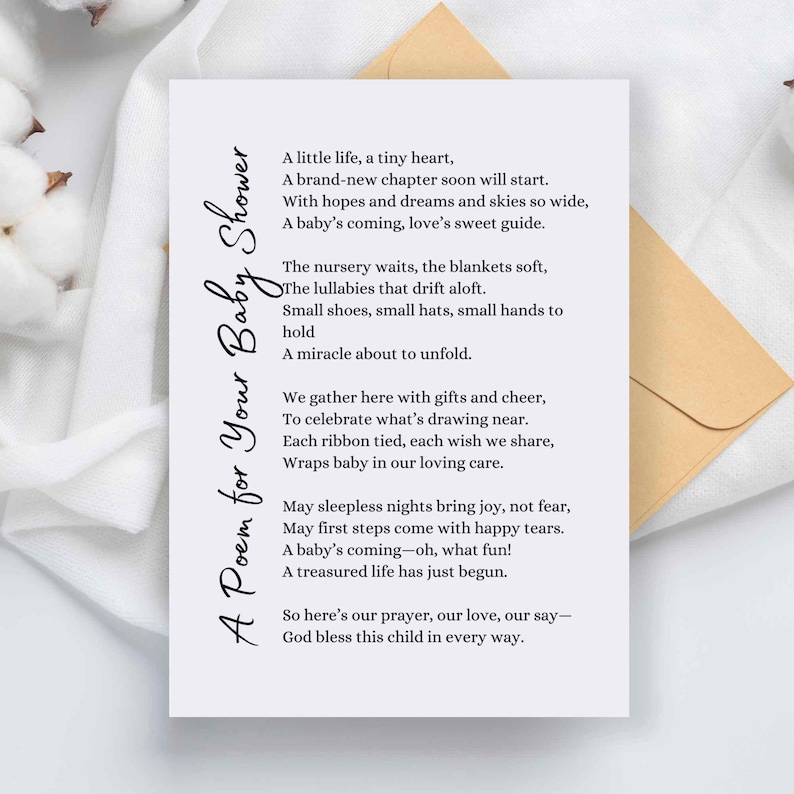 A Poem for Your Baby Shower
A little life, a tiny heart,
A brand-new chapter soon will start.
With hopes and dreams and skies so wide,
A baby’s coming, love’s sweet guide.
The nursery waits, the blankets soft,
The lullabies that drift aloft.
Small shoes, small hats, small hands to
hold
A miracle about to unfold.
We gather here with gifts and cheer,
To celebrate what’s drawing near.
Each ribbon tied, each wish we share,
Wraps baby in our loving care.
May sleepless nights bring joy, not fear,
May first steps come with happy tears.
A baby’s coming—oh, what fun!
A treasured life has just begun.
So here’s our prayer, our love, our say—
God bless this child in every way.